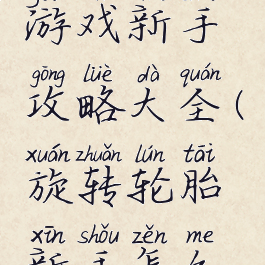 游戏新手
gōng lüè dà quán
攻略大全(
xuán zhuǎn lún tāi
旋转轮胎
xīn shǒu zěn me
新手怎么